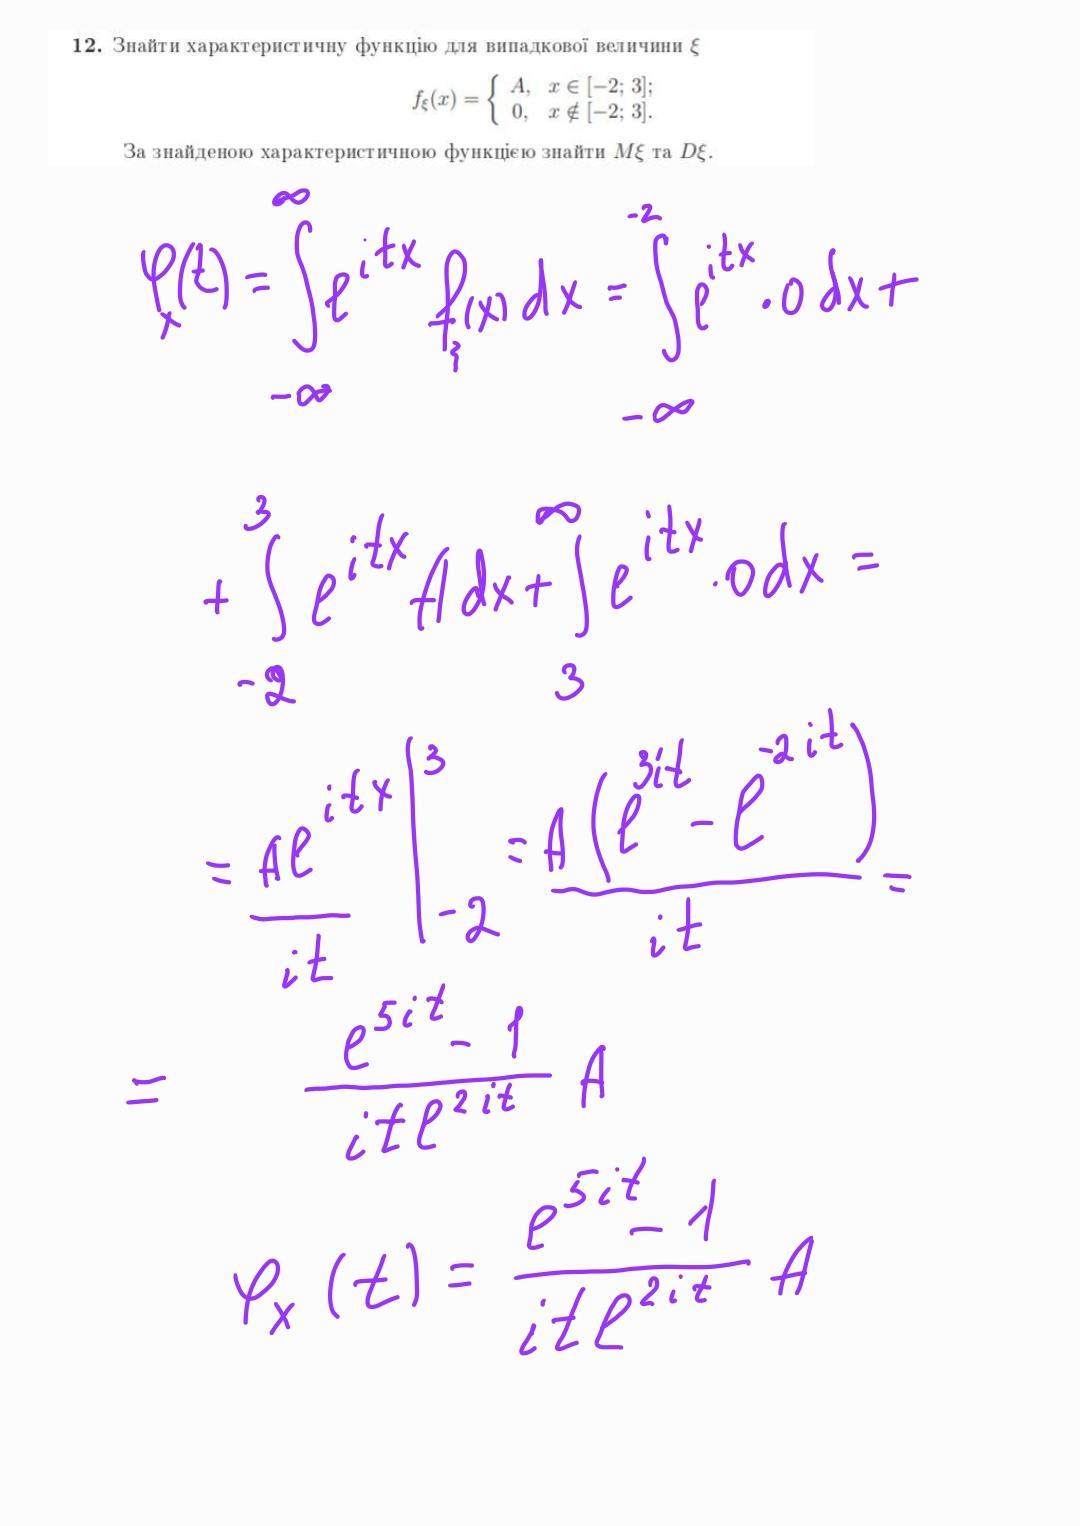 12. Знайти характеристичну функцію для випадкової величини ξ
f_ξ(x) = { A, x ∈ [−2; 3]; 
0, x ∉ [−2; 3].
За знайденою характеристичною функцією знайти Mξ та Dξ.
φ_x(t) = ∫_{-∞}^{∞} e^{itx} f_ξ(x) dx = ∫_{-∞}^{-2} e^{itx} · 0 dx +
+ ∫_{-2}^{3} e^{itx} A dx + ∫_{3}^{∞} e^{itx} · 0 dx =
= Ae^{itx}/it |_{-2}^{3} = A(e^{3it} - e^{-2it})/it =
= (e^{5it} - 1)/(it e^{2it}) A
φ_x(t) = (e^{5it} - 1)/(it e^{2it}) A